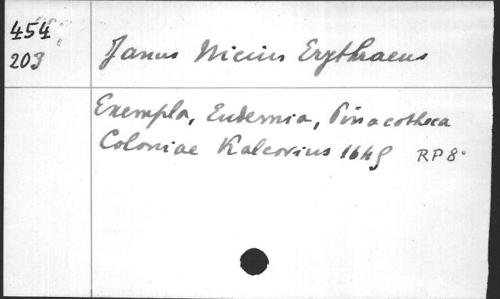 454
203
Janus Nicius Erythraeus
Exempla, Eudemia, Pinacotheca
Coloniae Kalcovius 1645 RP 8°